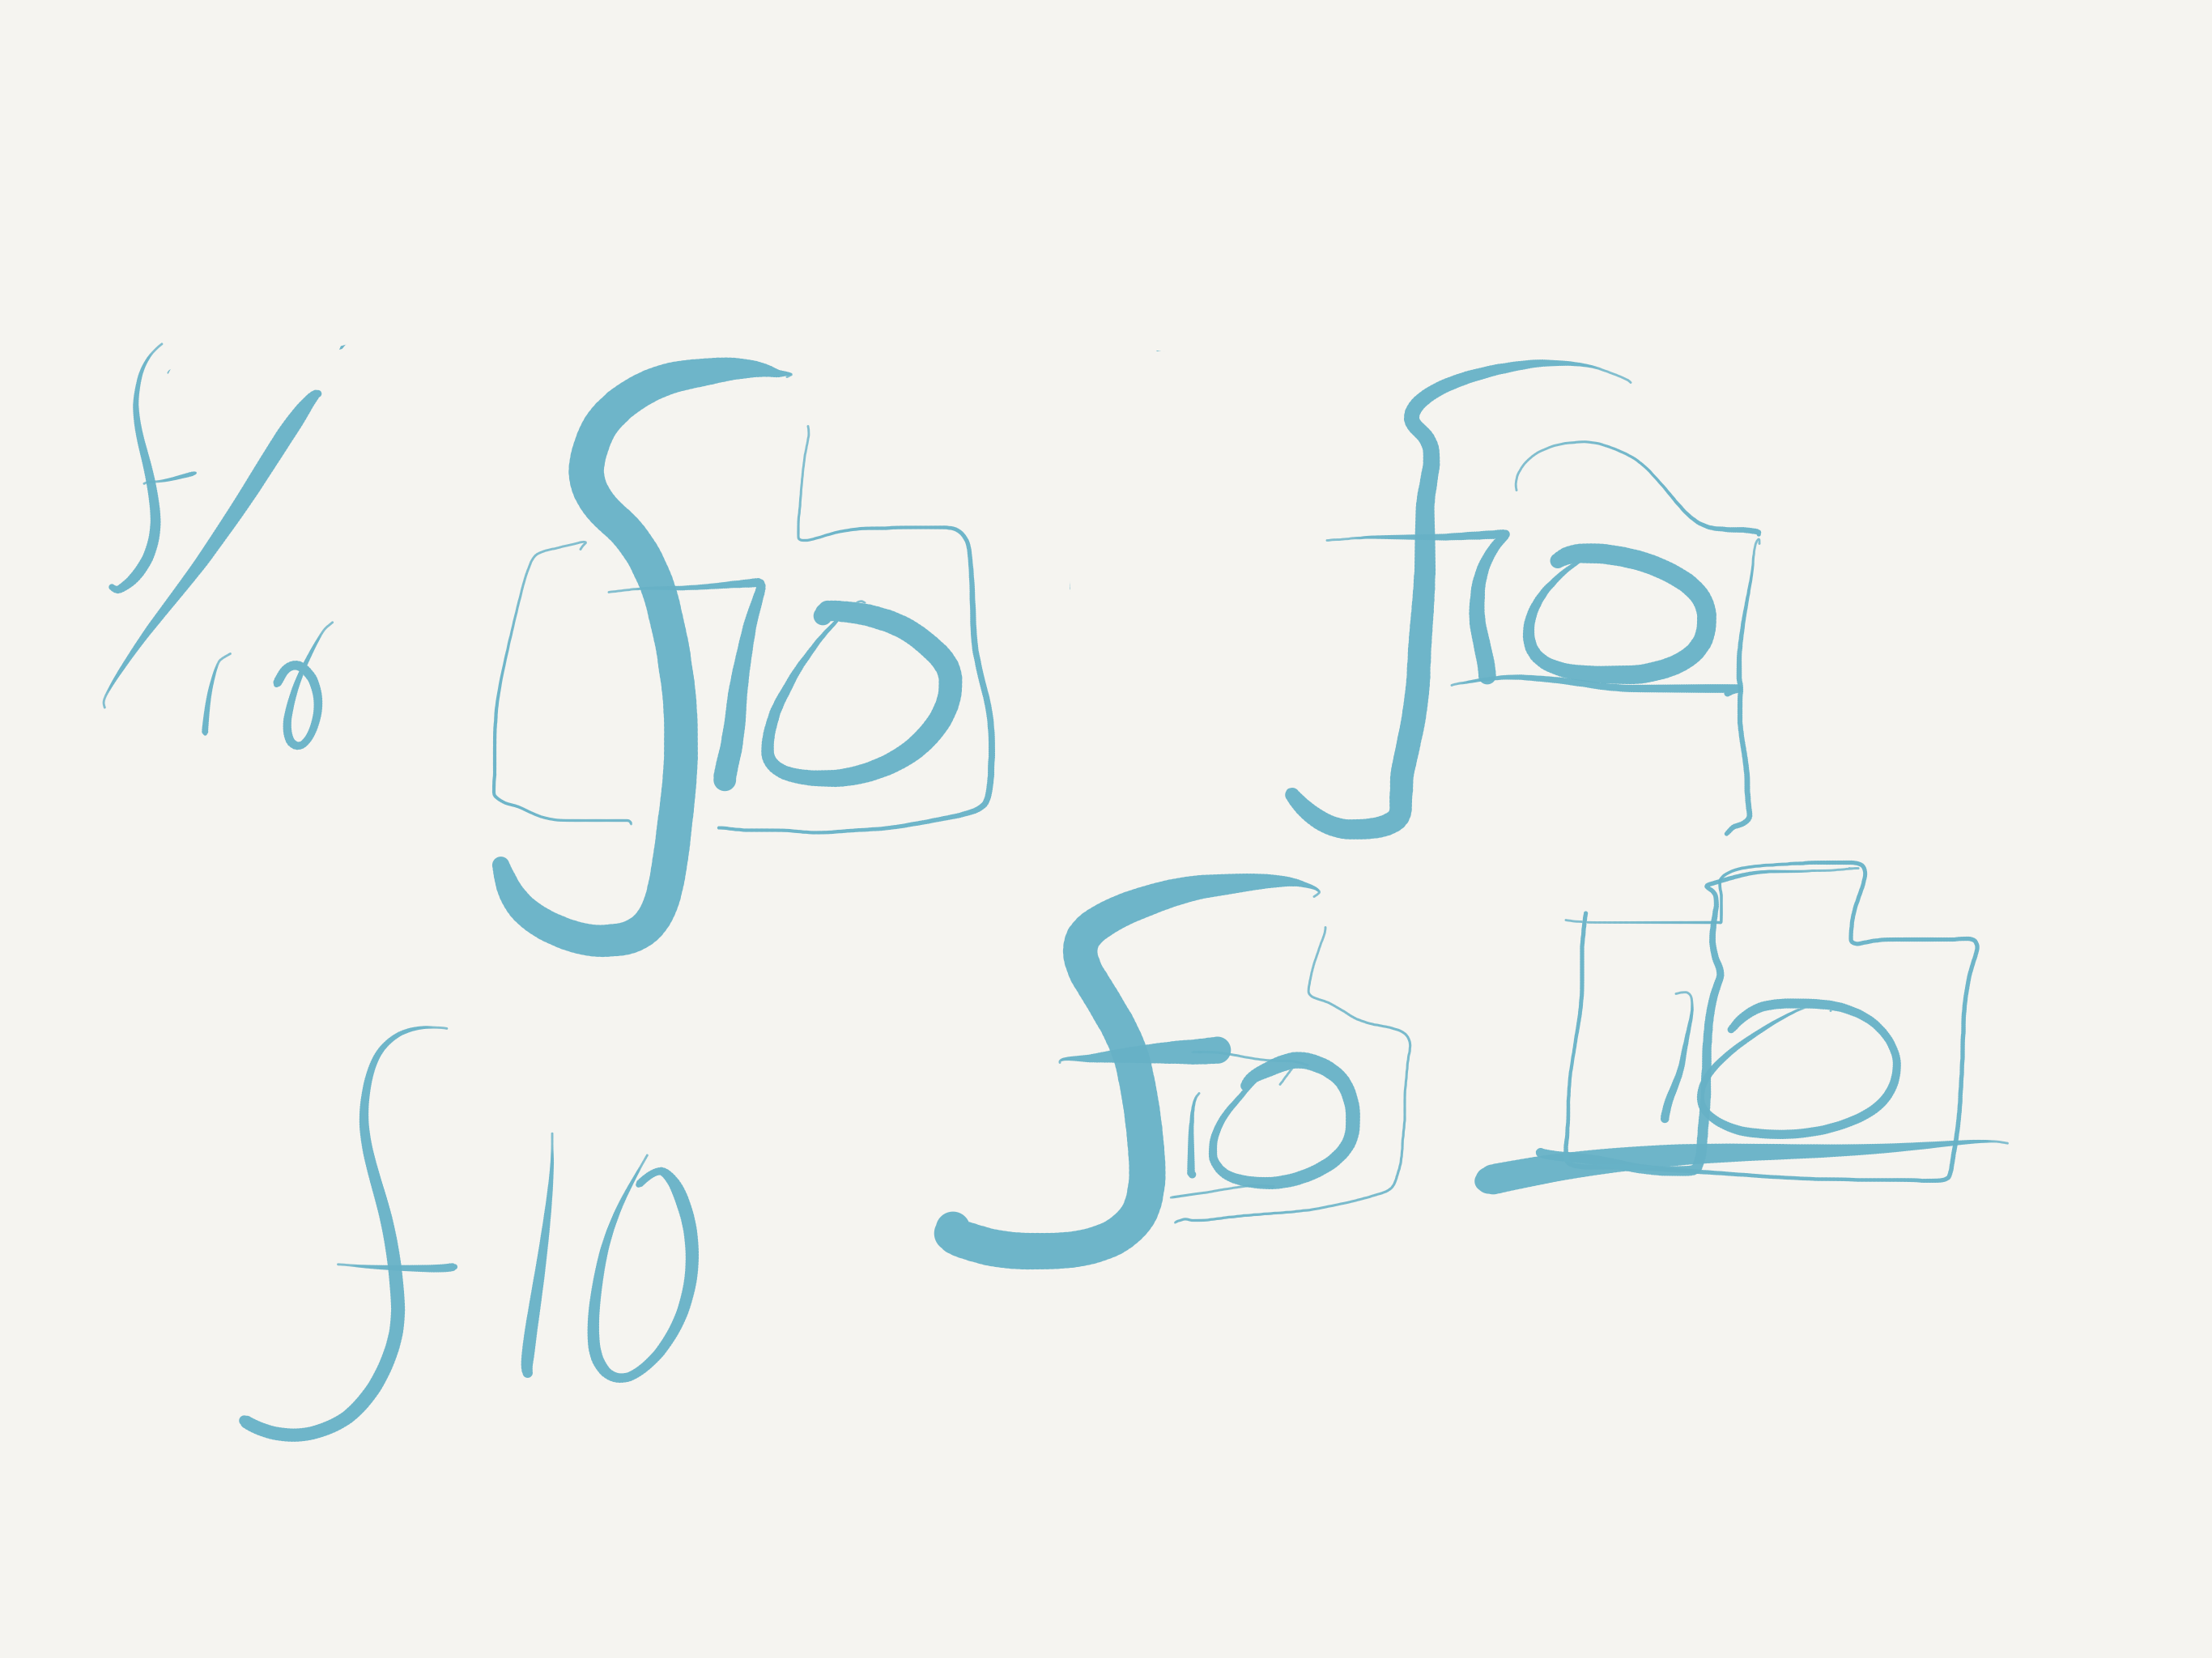 f/10
f10
f10
f10
f10
f10